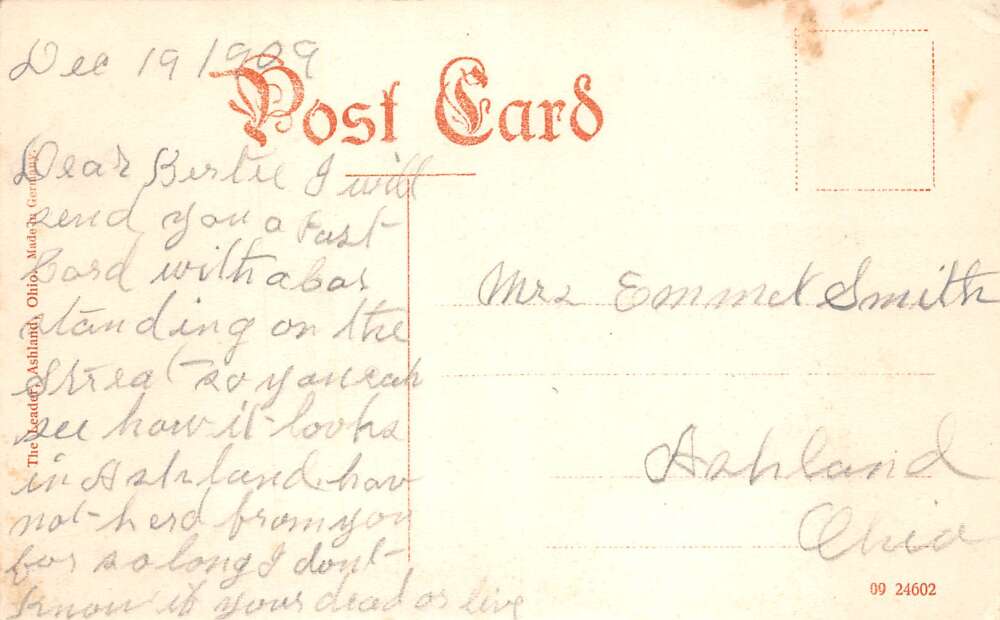 Dec 19 1909
Post Card
Dear Bertie I will
send you a Post
Card with a car
standing on the
Streat so you can
see how it looks
in Ashland hav
not herd from you
for so long I dont
know if your dead or live
Mrs Emmet Smith
Ashland
Ohio
The Leader, Ashland, Ohio. Made in Germany.
09 24602